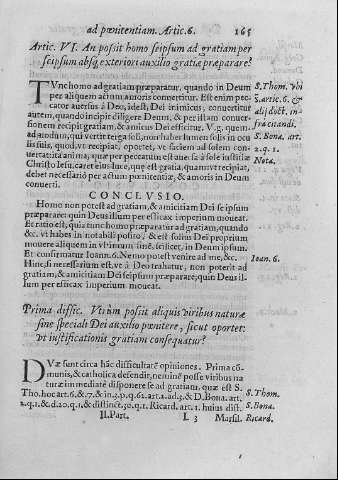 ad pœnitentiam. Artic. 6. 165
Artic. VI. An possit homo seipsum ad gratiam per
seipsum absq; exteriori auxilio gratiæ præparare?
TVnc homo ad gratiam præparatur, quando in Deum
per aliquem actum amoris convertitur. Est enim pec-
cator aversus à Deo, idest, Dei inimicus, convertitur
autem, quando incipit diligere Deum, & per istam conver-
sionem recipit gratiam, & amicus Dei efficitur, V. g. quem-
admodum, qui vertit terga soli, non habet lumen solis in ocu
lis suis, quod, vt recipiat, oportet, ve faciem ad solem con-
vertat: ità anima, quæ per peccatum est auersa à sole iustitiæ
Christo Iesu, caret eius luce, quę est gratia, quam vt recipiat,
debet necessariò per actum pœnitentiæ, & amoris in Deum
conuerti.
S. Thom. vbi
S. artic. 6. &
alij doct. in-
fra citandi.
S. Bona. art.
2. q. 1.
Nota.
CONCLVSIO.
Homo non potest ad gratiam, & amicitiam Dei se ipsum
præparare: quin Deus illum per efficax imperium moueat.
Et ratio est, quia tunc homo præparatur ad gratiam, quando
&c. vt habes in notabili posito, & est solius Dei proprium
mouere aliquem in vltimum finē, scilicet, in Deum ipsum.
Et confirmatur Ioann. 6. Nemo potest venire ad me, &c.
Hinc, si necessarium est, vt à Deo trahatur, non poterit ad
gratiam, & amicitiam Dei seipsum præparare; quin Deus il-
lum per efficax imperium moueat.
Ioan. 6.
Prima diffic. Vtrùm possit aliquis viribus naturæ
sine speciali Dei auxilio pœnitere, sicut oportet:
vt iustificationis gratiam consequatur?
DVæ sunt circa hāc difficultatē opiniones. Prima cō-
munis, & catholica defendit, neminē posse viribus na
turæ immediatè disponere se ad gratiam, quæ est S.
Tho. hoc art. 6. & 7. & in 3. p. q. 62. art. 2. ad. 3. & D. Bona. art.
2. q. 1. & d. 20. q. 1. & distinct. 30. q. 1. Ricard. art. 1. huius dist.
S. Thom.
S. Bona.
Ricard.
II. Part. L 3 Marsil.